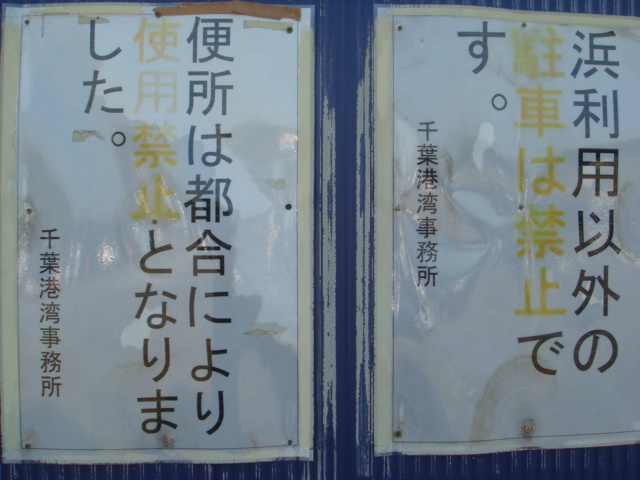 浜利用以外の
駐車は禁止で
す。
千葉港湾事務所
便所は都合により
使用禁止となりま
した。
千葉港湾事務所